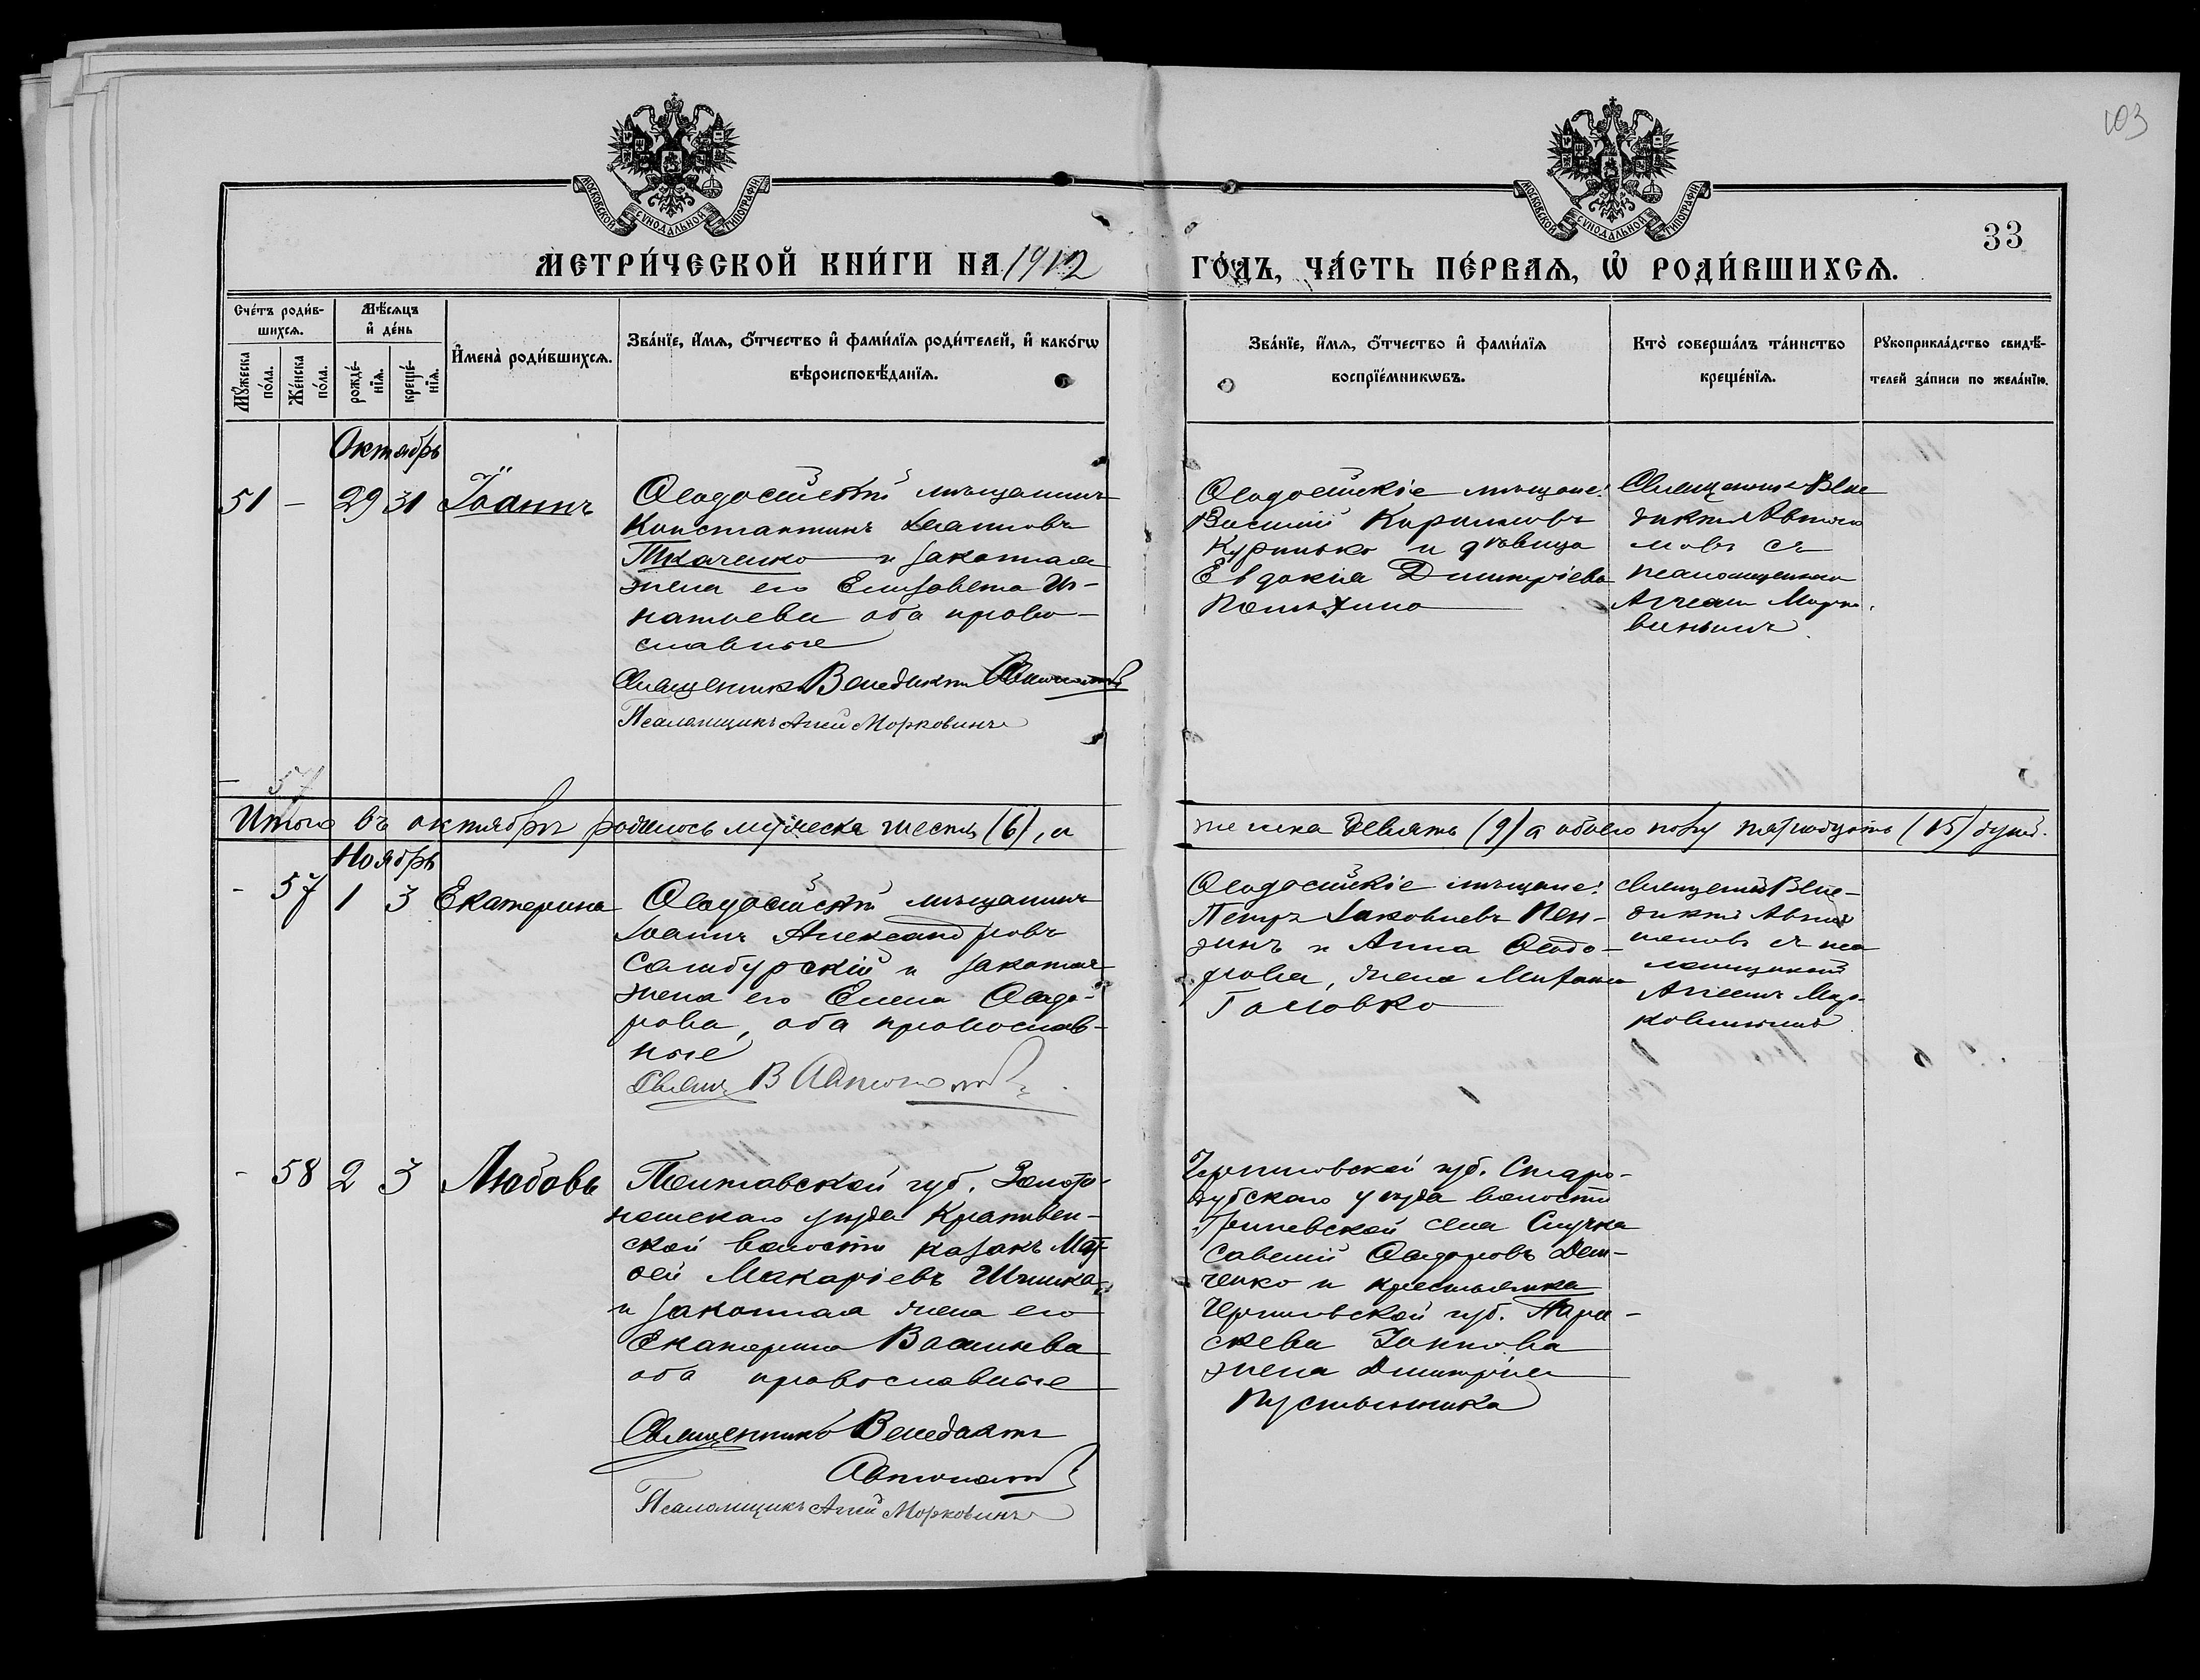 103
33
МОСКОВСКОЙ СѴНОДАЛЬНОЙ ТИПОГРАФІИ
МОСКОВСКОЙ СѴНОДАЛЬНОЙ ТИПОГРАФІИ
МЕТРИ́ЧЕСКОЙ КНИ́ГИ НА 1912 ГО́ДЪ, ЧА́СТЬ ПЕ́РВАѦ, Ѡ҆ РОДИ́ВШИХСѦ.
Сче́тъ роди́в-
шихсѧ.
Мꙋ́жеска по́ла.
Же́нска по́ла.
Мѣ́сѧцъ
и҆ де́нь
рожде́-
нїѧ.
креще́-
нїѧ.
И҆мена̀ роди́вшихсѧ.
Зва́нїе, и҆́мѧ, ѻ҆́тчество и҆ фами́лїѧ роди́телей, и҆ како́гѡ
вѣроисповѣ́данїѧ.
Зва́нїе, и҆́мѧ, ѻ҆́тчество и҆ фами́лїѧ
воспрїе́мникѡвъ.
Кто̀ соверша́лъ та́инство
креще́нїѧ.
Рꙋкоприкла́дство свидѣ́-
телей за́писи по жела́нїю.
Октябрь
51 - 29 31 Іоаннъ
Ѳеодосійскій мѣщанинъ
Константинъ Іоанновъ
Ткаченко и законная
жена его Елизавета Иг-
натьева оба право-
славные
Священникъ Венедиктъ Автономовъ
Псаломщикъ Аггей Морковинъ
Ѳеодосійскіе мѣщане:
Василий Кирилловъ
Куринько и дѣвица
Евдокія Димитріева
Священникъ Вене
диктъ Автоно
мовъ съ
псаломщикомъ
Аггеемъ Морко
винымъ.
57
Итого въ октябрѣ родилось мужеска шесть (6), а
женска девять (9) а обоего полу пятнадцать (15) душъ.
Ноябрь
- 57 1 3 Екатерина
Ѳеодосійскій мѣщанинъ
Іоаннъ Александровъ
Самбурскій и законная
жена его Елена Ѳеодо-
рова, оба православ-
ные
Свящ. В Автономовъ
Ѳеодосійскіе мѣщане:
Петръ Іаковлевъ Пен-
зинъ и Анна Ѳеодо-
рова, жена Михаила
Головко
Священникъ Вене-
диктъ Автоно
номовъ съ пса
ломщикомъ
Аггеемъ Мор-
ковинымъ
- 58 2 3 Любовь
Полтавской губ. Золото-
ношскаго уѣзда Кропивен-
ской волости казакъ Мат-
ѳей Макаріевъ Шишка
и законная жена его
Екатерина Васильева
оба православные
Священникъ Венедиктъ
Автономовъ
Псаломщикъ Аггей Морковинъ
Черниговской губ. Старо-
дубскаго уѣзда волости
Гриневской села Случка
Савелій Ѳеодоровъ Дем-
ченко и крестьянка
Черниговской губ. Пара-
скева Іоаннова
жена Димитрія
Пустынника